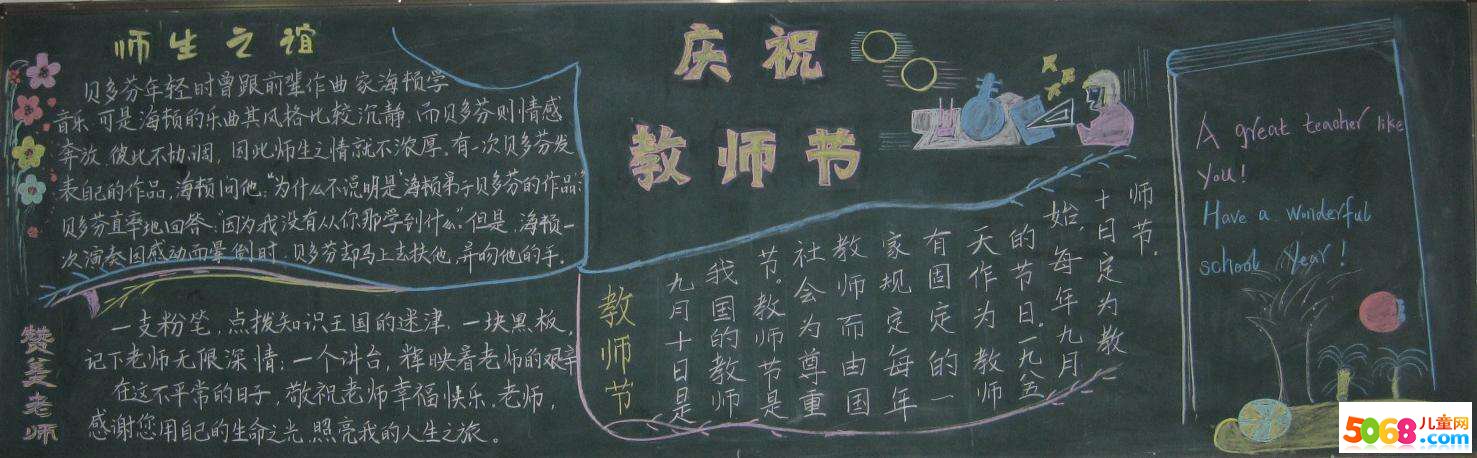 师生之谊
贝多芬年轻时曾跟前辈作曲家海顿学
音乐.可是海顿的乐曲其风格比较沉静.而贝多芬则情感
奔放.彼此不协调，因此师生之情就不浓厚.有一次贝多芬发
表自己的作品,海顿问他:“为什么不说明是‘海顿弟子贝多芬的作品’
贝多芬直率地回答:“因为我没有从你那学到什么”.但是,海顿一
次演奏因感动而晕倒时.贝多芬却马上去扶他,并吻他的手.
赞美老师
一支粉笔，点拨知识王国的迷津.一块黑板，
记下老师无限深情；一个讲台，辉映着老师的艰辛
在这不平常的日子，敬祝老师幸福快乐.老师，
感谢您用自己的生命之光.照亮我的人生之旅。
庆祝
教师节
教师节
九月十日是
我国的教师
节。教师节是
社会为尊重
教师而由国
家规定每年
有固定的一
天作为教师
的节日.一九八五
始,每年九月
十日定为教
师节.
A great teacher like
you!
Have a wonderful
school year!
5068儿童网
.com